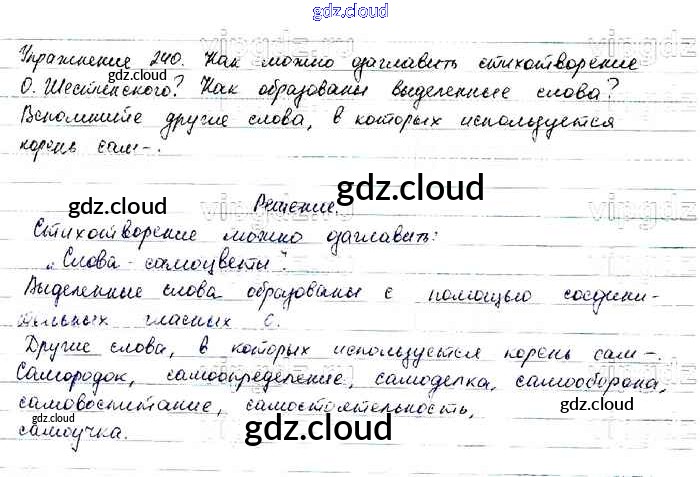 gdz.cloud
Упражнение 240. Как можно озаглавить стихотворение
gdz.cloud
О. Шестинского? Как образованы выделенные слова?
Вспомните другие слова, в которых используется
корень сам-.
gdz.cloud
gdz.cloud
Решение.
Стихотворение можно озаглавить:
"Слова - самоцветы".
Выделенные слова образованы с помощью соедини-
тельных гласных о.
Другие слова, в которых используется корень сам-.
Самородок, самоопределение, самоделка, самооборона,
gdz.cloud
самовоспитание, самостоятельность,
gdz.cloud
gdz.cloud
самоучка.